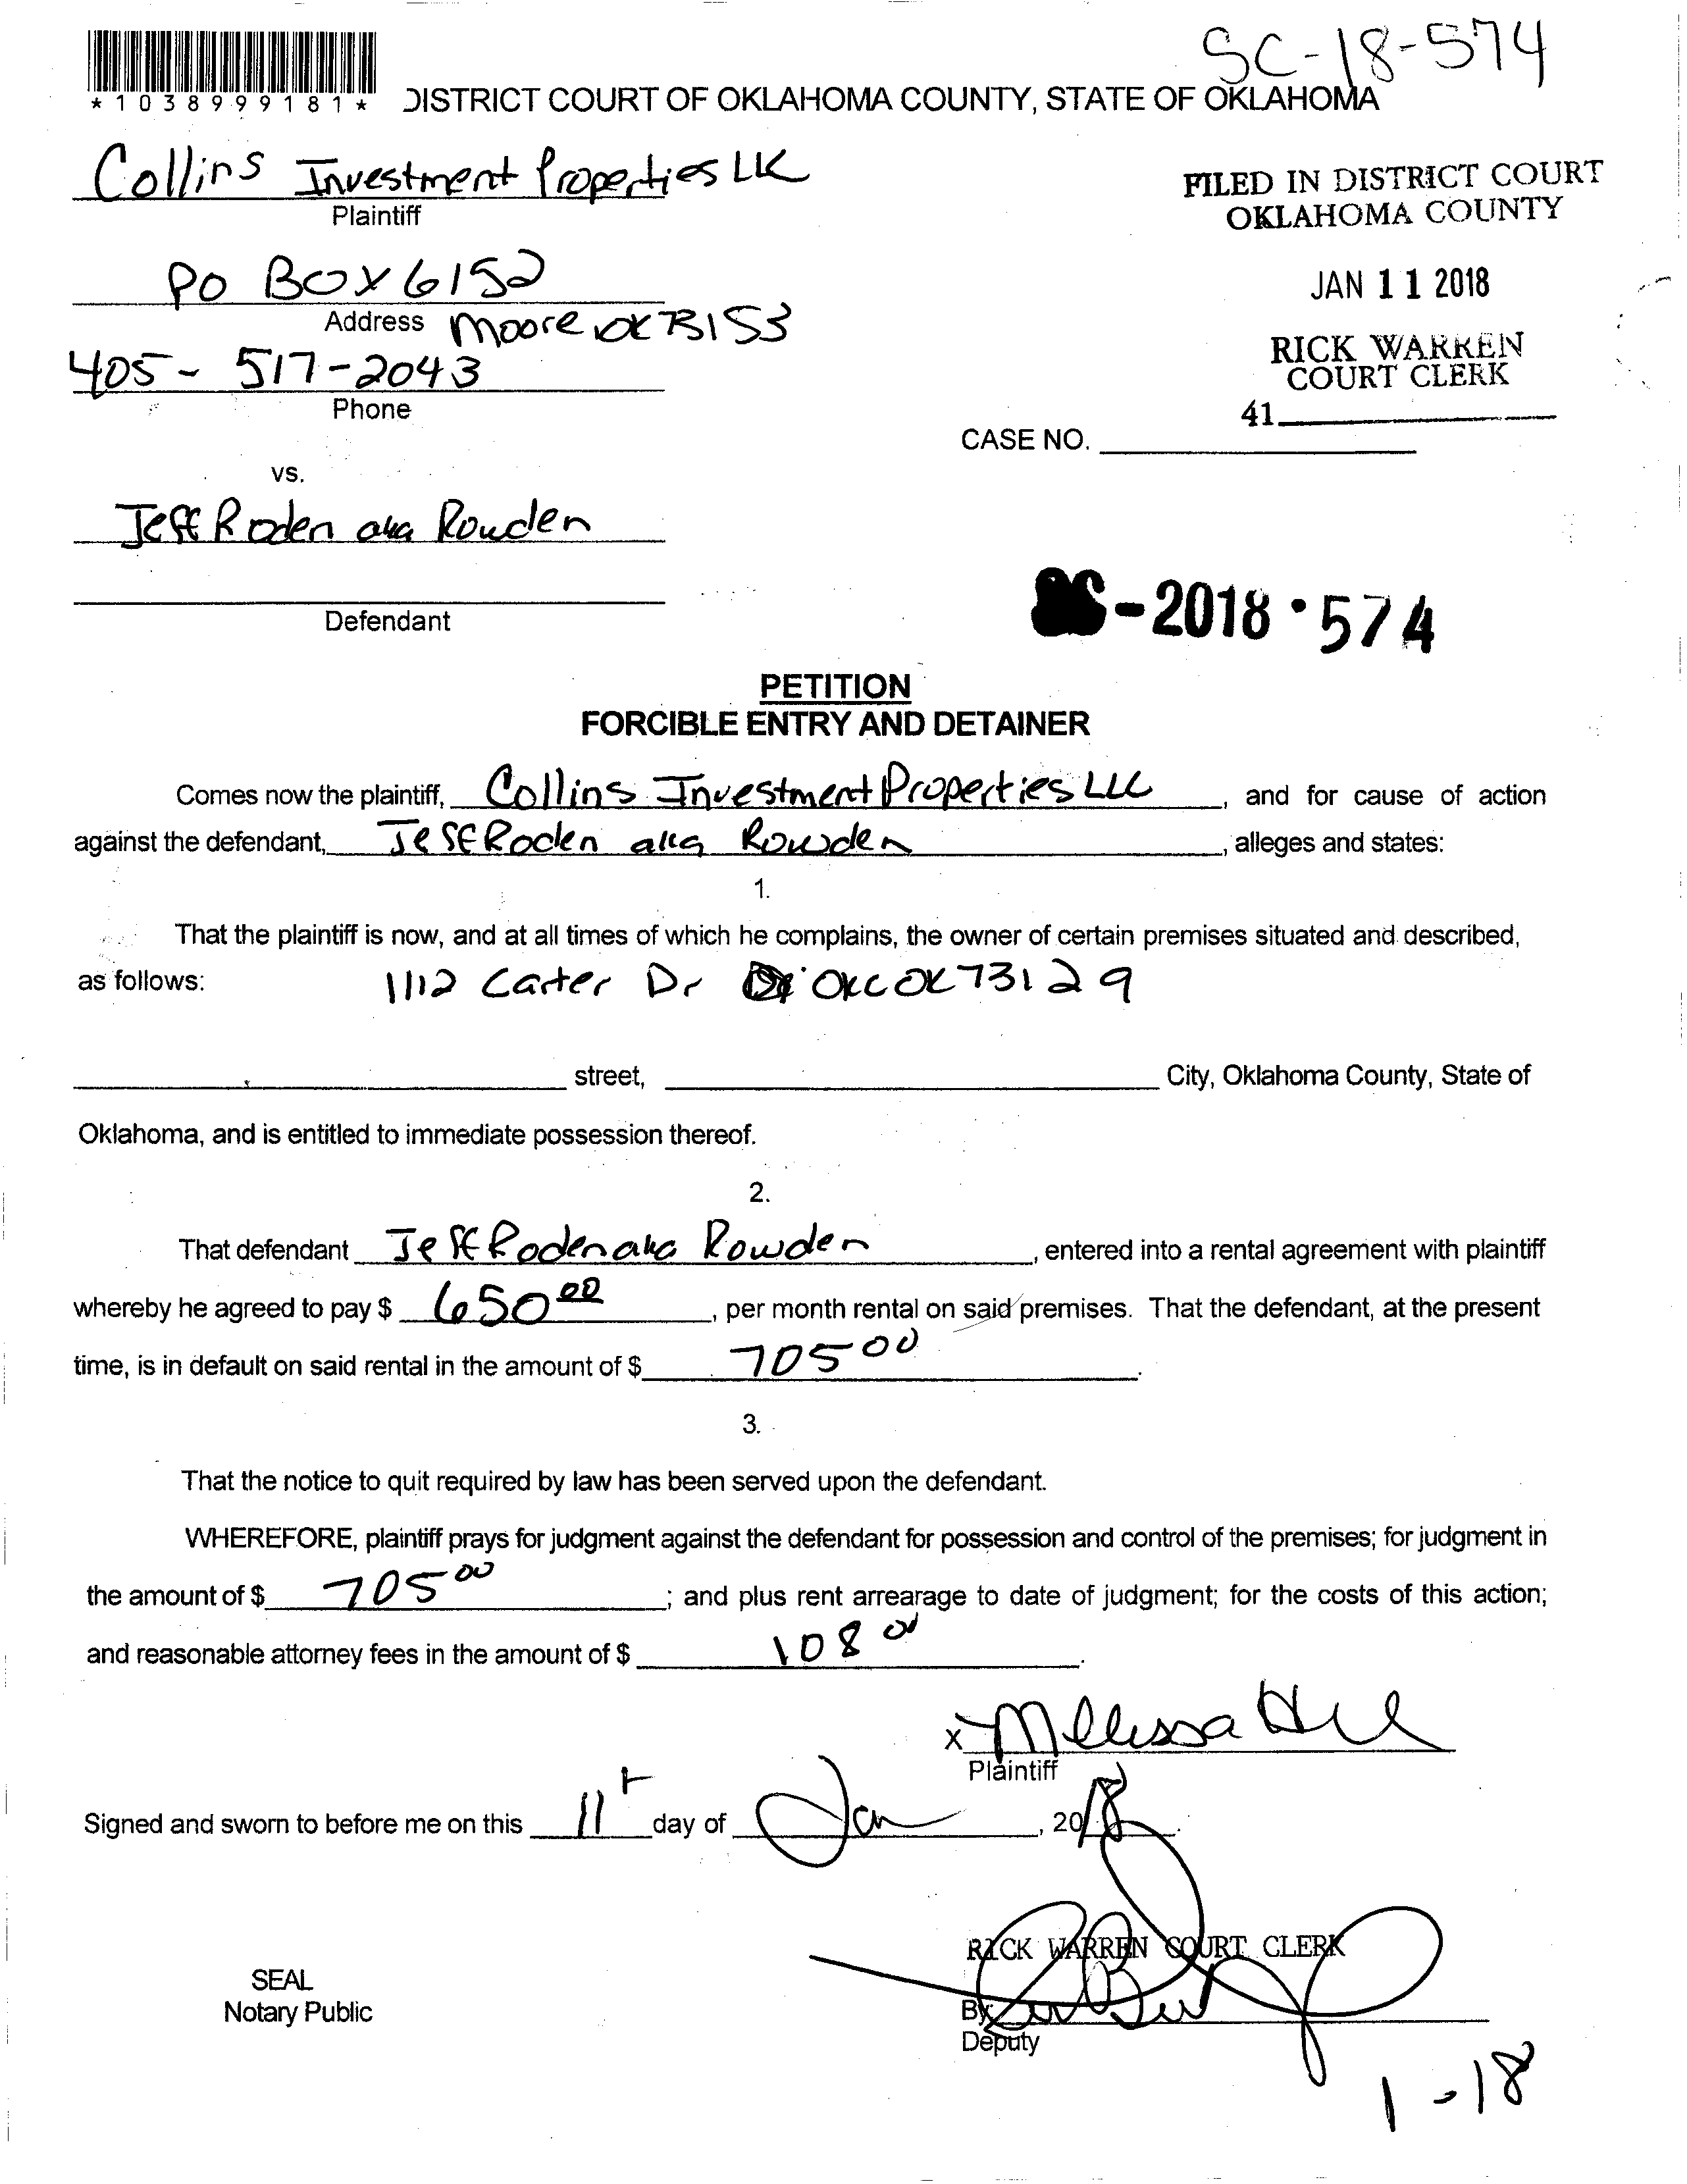 SC-18-574
*1038999181*
DISTRICT COURT OF OKLAHOMA COUNTY, STATE OF OKLAHOMA
Collins Investment Properties LLC
Plaintiff
FILED IN DISTRICT COURT
OKLAHOMA COUNTY
PO BOX 6152
JAN 11 2018
Address Moore OK 73153
RICK WARREN
COURT CLERK
405-517-2043
Phone
41
CASE NO.
vs.
Jeff Roden aka Rowden
Defendant
-2018-574
PETITION
FORCIBLE ENTRY AND DETAINER
Comes now the plaintiff, Collins Investment Properties LLC, and for cause of action
against the defendant, Jeff Roden aka Rowden, alleges and states:
1.
That the plaintiff is now, and at all times of which he complains, the owner of certain premises situated and described,
as follows: 1112 Carter Dr OKC OK 73129
street, City, Oklahoma County, State of
Oklahoma, and is entitled to immediate possession thereof.
2.
That defendant Jeff Roden aka Rowden, entered into a rental agreement with plaintiff
whereby he agreed to pay $ 650 00, per month rental on said premises. That the defendant, at the present
time, is in default on said rental in the amount of $ 705 00.
3.
That the notice to quit required by law has been served upon the defendant.
WHEREFORE, plaintiff prays for judgment against the defendant for possession and control of the premises; for judgment in
the amount of $ 705 00; and plus rent arrearage to date of judgment; for the costs of this action;
and reasonable attorney fees in the amount of $ 108 00.
x Melissa
Plaintiff
Signed and sworn to before me on this 11 day of Jan, 2018.
RICK WARREN COURT CLERK
SEAL
Notary Public
By:
Deputy
1-18